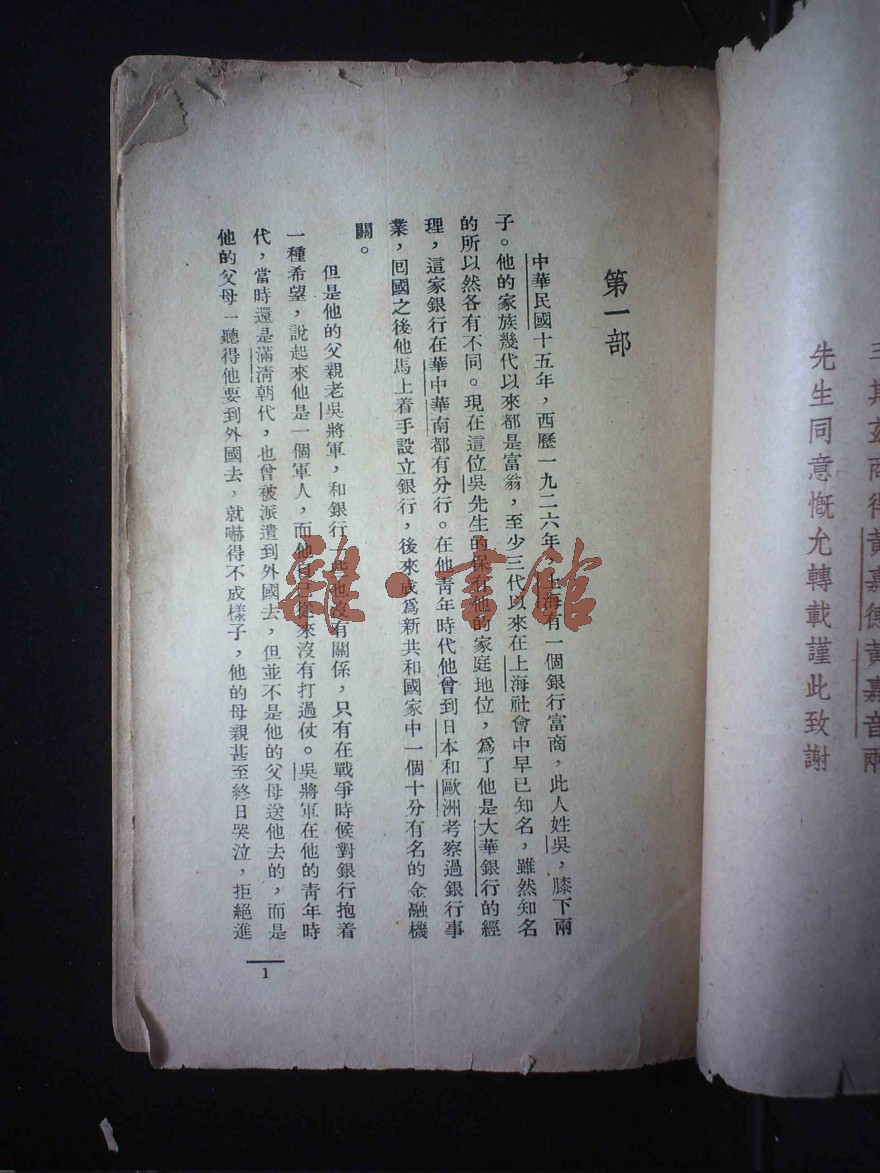 三斯玆商得黃嘉德黃嘉音兩
先生同意慨允轉載謹此致謝
第一部
中華民國十五年，西歷一九二六年，上海有一個銀行富商，此人姓吳，膝下兩
子。他的家族幾代以來都是富翁，至少三代以來在上海社會中早已知名，雖然知名
的所以然各有不同。現在這位吳先生的保有他的家庭地位，爲了他是大華銀行的經
理，這家銀行在華中華南都有分行。在他靑年時代他曾到日本和歐洲考察過銀行事
業，回國之後他馬上着手設立銀行，後來成爲新共和國家中一個十分有名的金融機
關。
但是他的父親老吳將軍，和銀行一點也沒有關係，只有在戰爭時候對銀行抱着
一種希望，說起來他是一個軍人，而他自己從來沒有打過仗。吳將軍在他的靑年時
代，當時還是滿淸朝代，也曾被派遣到外國去，但並不是他的父母送他去的，而是
他的父母一聽得他要到外國去，就嚇得不成樣子，他的母親甚至終日哭泣，拒絕進
1
雜·書館